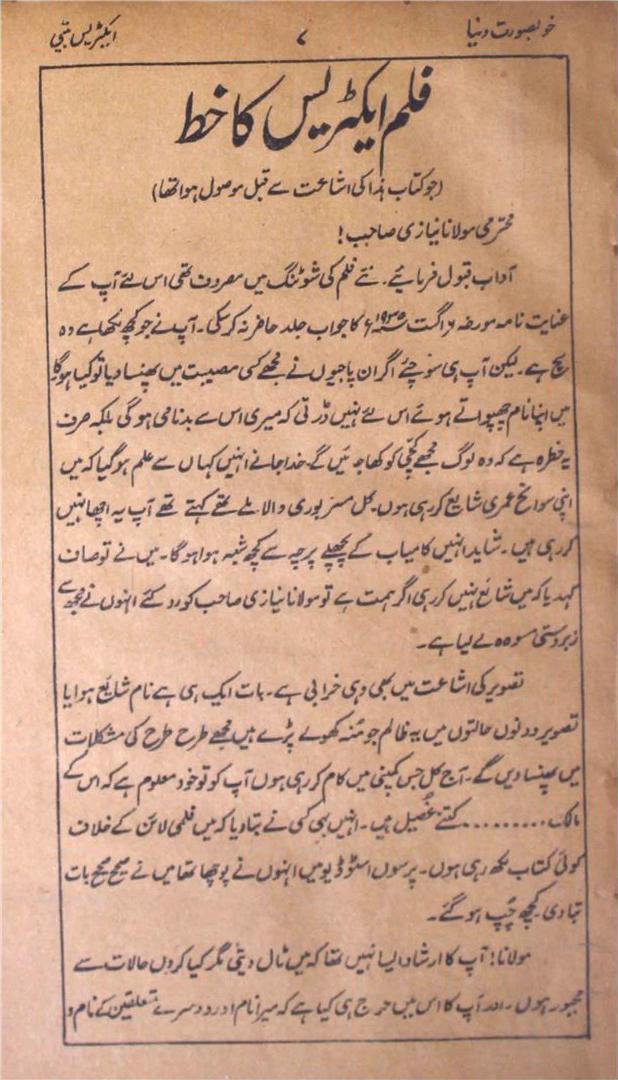 خوبصورت دنیا ۷ ایکٹریس بیتی
فلم ایکٹریس کا خط
(جو کتاب ہذا کی اشاعت سے قبل موصول ہوا تھا)
محترمی مولانا نیازی صاحب!
آداب قبول فرمایئے۔ نئے فلم کی شوٹنگ میں مصروف تھی اس لئے آپ کے
عنایت نامہ مورخہ ۲ اگست ۱۹۳۵ء کا جواب جلد حاضر نہ کر سکی۔ آپ نے جو کچھ لکھا ہے وہ
سچ ہے۔ لیکن آپ ہی سوچئے اگر ان پاجیوں نے مجھے کسی مصیبت میں پھنسا دیا تو کیا ہوگا
میں اپنا نام چھپواتے ہوئے اس لئے نہیں ڈرتی کہ میری اس سے بدنامی ہوگی بلکہ صرف
یہ خطرہ ہے کہ وہ لوگ مجھے کچی کو کھا جائیں گے۔ خدا جانے انہیں کہاں سے علم ہوگیا کہ میں
اپنی سوانح عمری شایع کر رہی ہوں۔ کل مسٹر بوری والا ملے تھے کہتے تھے آپ یہ اچھا نہیں
کر رہی ہیں۔ شاید انہیں کامیاب کے پچھلے پرچہ سے کچھ شبہ ہوا ہوگا۔ میں نے تو صاف
کہدیا کہ میں شائع نہیں کر رہی اگر ہمت ہے تو مولانا نیازی صاحب کو روکئے انہوں نے مجھ سے
زبردستی مسودہ لے لیا ہے۔
تصویر کی اشاعت میں بھی وہی خرابی ہے۔ بات ایک ہی ہے نام شایع ہو یا
تصویر دونوں حالتوں میں یہ ظالم جو منہ کھولے پڑے ہیں مجھے طرح طرح کی مشکلات
میں پھنسا دیں گے۔ آج کل جس کمپنی میں کام کر رہی ہوں آپ کو تو خود معلوم ہے کہ اس کے
مالک ......... کتنے غصیل ہیں۔ انہیں بھی کسی نے بتا دیا کہ میں فلمی لائن کے خلاف
کوئی کتاب لکھ رہی ہوں۔ پرسوں اسٹوڈیو میں انہوں نے پوچھا تھا میں نے صحیح صحیح بات
بتا دی کچھ چپ ہو گئے۔
مولانا! آپ کا ارشاد ایسا نہیں تھا کہ میں ٹال دیتی مگر کیا کروں حالات سے
مجبور ہوں۔ اور آپ کا اس میں حرج ہی کیا ہے کہ میرا نام اور دوسرے متعلقین کے نام و